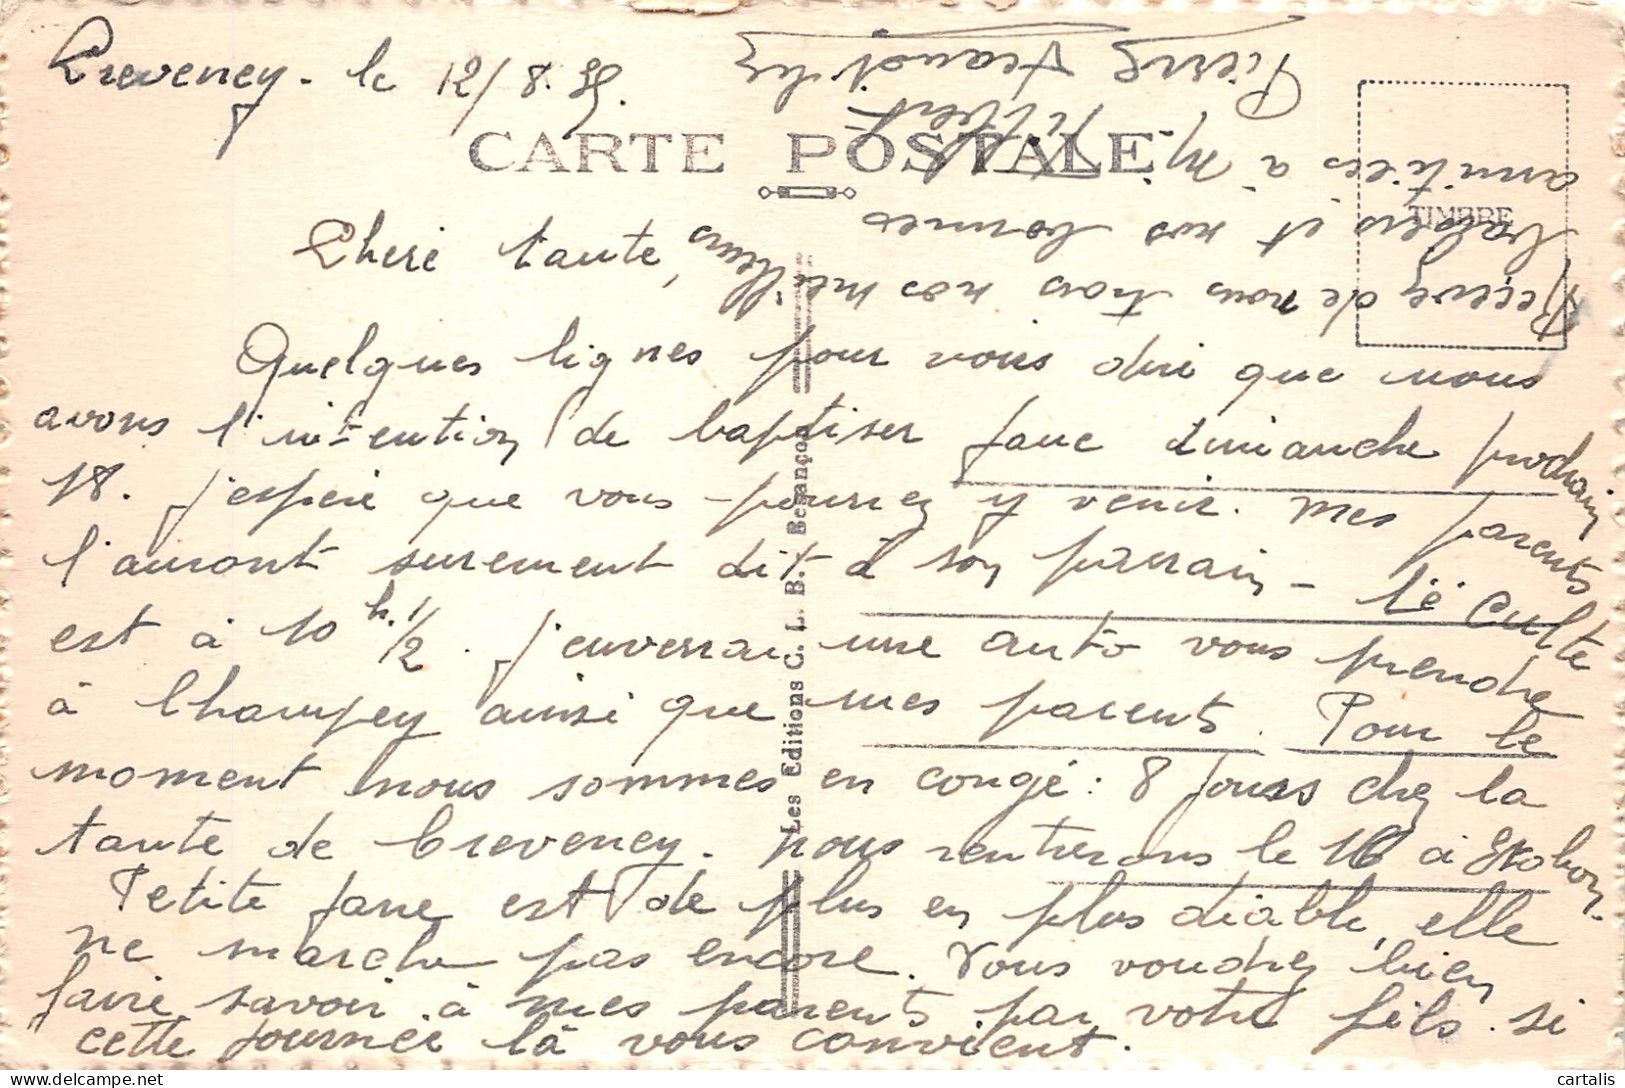 Creveney - le 12/8.
CARTE POSTALE
TIMBRE
Cheré tante,
Quelques lignes pour vous dire que nous
avons l'intention de baptiser Jane dimanche prochain
18. J'espère que vous pourrez y venir. Mes parents
l'auront surement dit à son parrain - Le culte
est à 10 h. 1/2. J'enverrai une auto vous prendre
à Champey ainsi que mes parents. Pour le
moment nous sommes en congé : 8 jours chez la
tante de Creveney. Nous rentrerons le 16 à
Petite Jane est de plus en plus diable, elle
ne marche pas encore. Vous voudrez bien
faire savoir à mes parents par votre fils si
cette journée là vous convient.
Recevez de nous trois nos meilleurs
baisers et nos bonnes
amitiés à Mr
Gilbert
Pierre
Les Editions C. L. B. - Besançon
cartalis